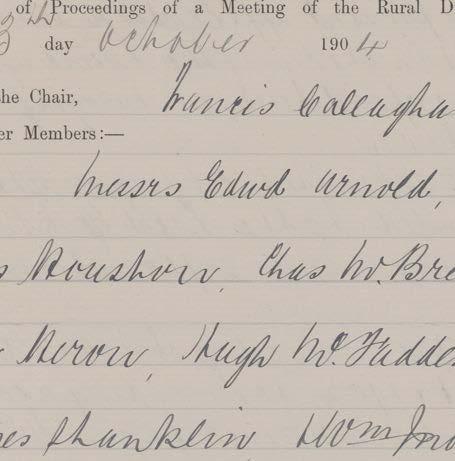 of Proceedings of a Meeting of the Rural D
3rd day October 1904
the Chair, Francis Callagha
er Members:—
Messrs Edwd Arnold,
s Houston, Chas Mc.Bre
Heron, Hugh McFadde
es Shanklin Wm